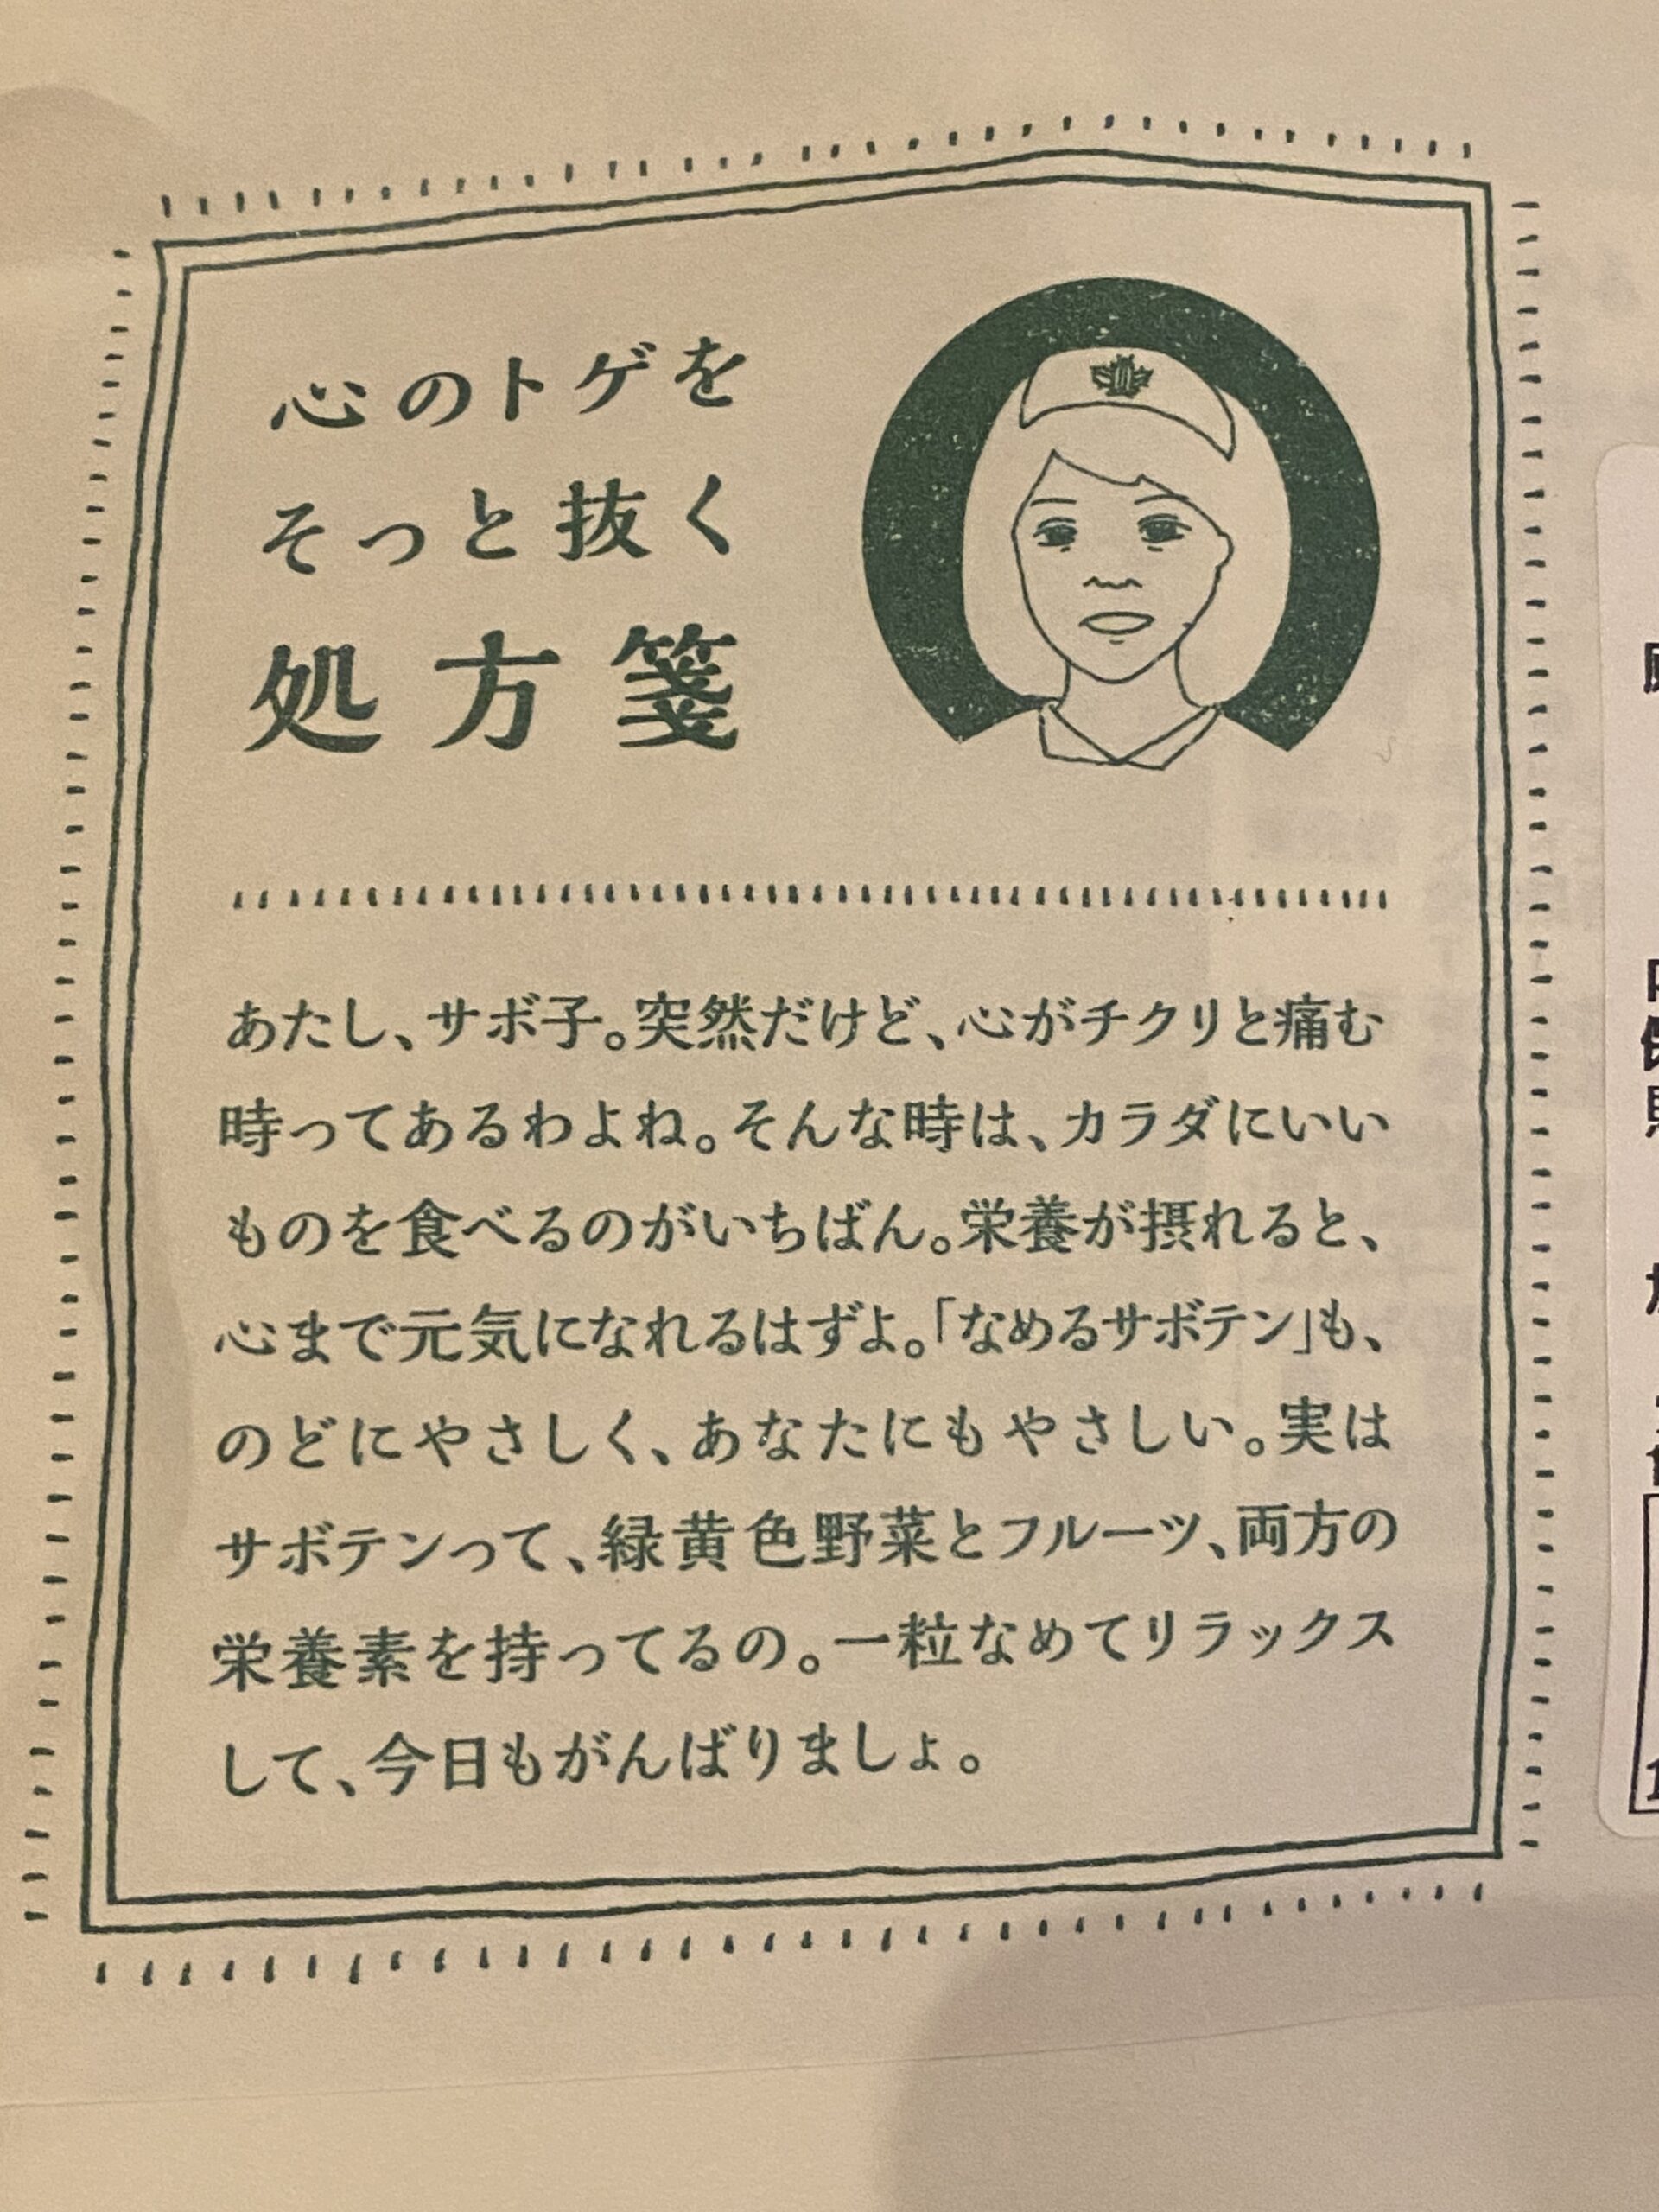 心のトゲを
そっと抜く
処方箋
あたし、サボ子。突然だけど、心がチクリと痛む
時ってあるわよね。そんな時は、カラダにいい
ものを食べるのがいちばん。栄養が摂れると、
心まで元気になれるはずよ。「なめるサボテン」も、
のどにやさしく、あなたにもやさしい。実は
サボテンって、緑黄色野菜とフルーツ、両方の
栄養素を持ってるの。一粒なめてリラックス
して、今日もがんばりましょ。